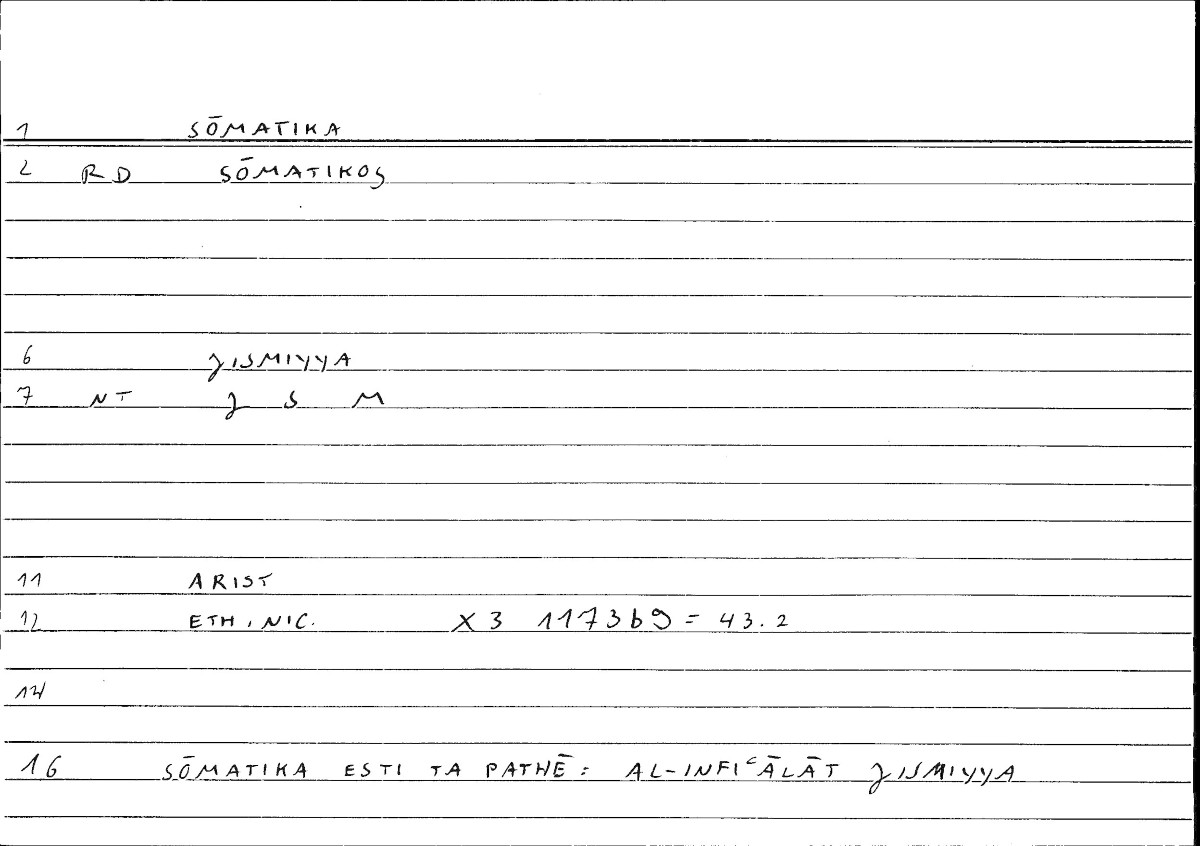 1 SŌMATIKA
2 RD SŌMATIKOS
6 JISMIYYA
7 NT J S M
11 ARIST
12 ETH. NIC. X 3 1173b9 = 43.2
14
16 SŌMATIKA ESTI TA PATHĒ : AL-INFIʿĀLĀT JISMIYYA